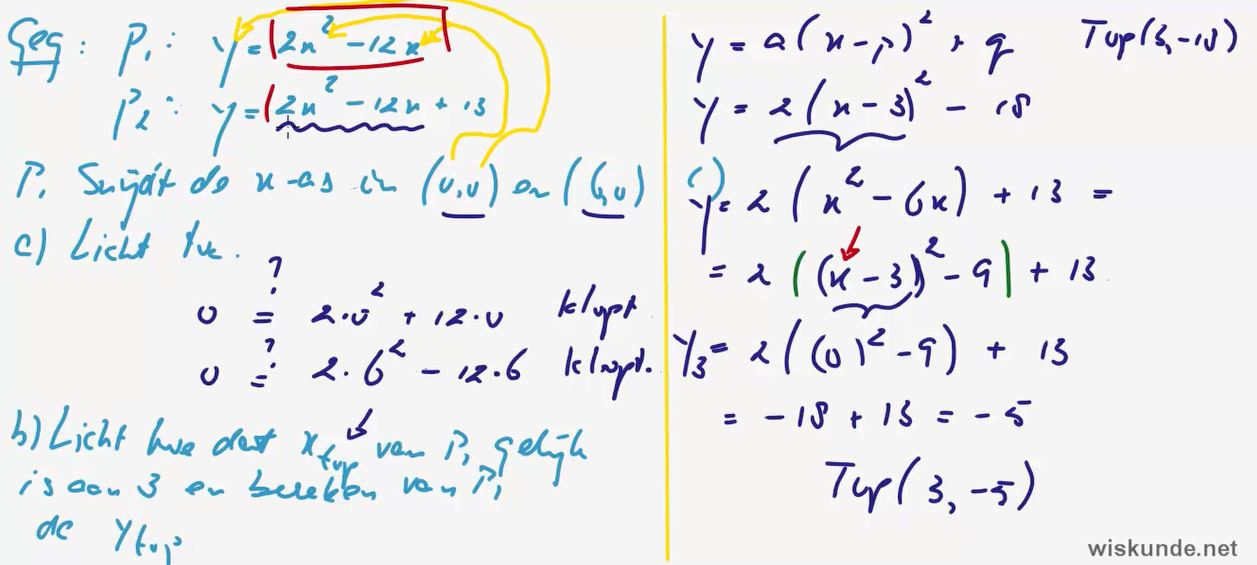 Geg: P₁: y = |2x² - 12x|
P₂: y = |2x² - 12x + 13
P₁ Snijdt de x-as in (0,0) en (6,0)
c) Licht toe.
0 ≟ 2·0² + 12·0 klopt
0 ≟ 2·6² - 12·6 klopt.
b) Licht hoe dat x top van P₁ gelijk
is aan 3 en bereken van P₁
de y top
y = a(x - p)² + q Top(3, -18)
y = 2(x - 3)² - 18
c)
y = 2(x² - 6x) + 13 =
= 2((x - 3)² - 9) + 13
y₃ = 2((0)² - 9) + 13
= -18 + 13 = -5
Top(3, -5)
wiskunde.net